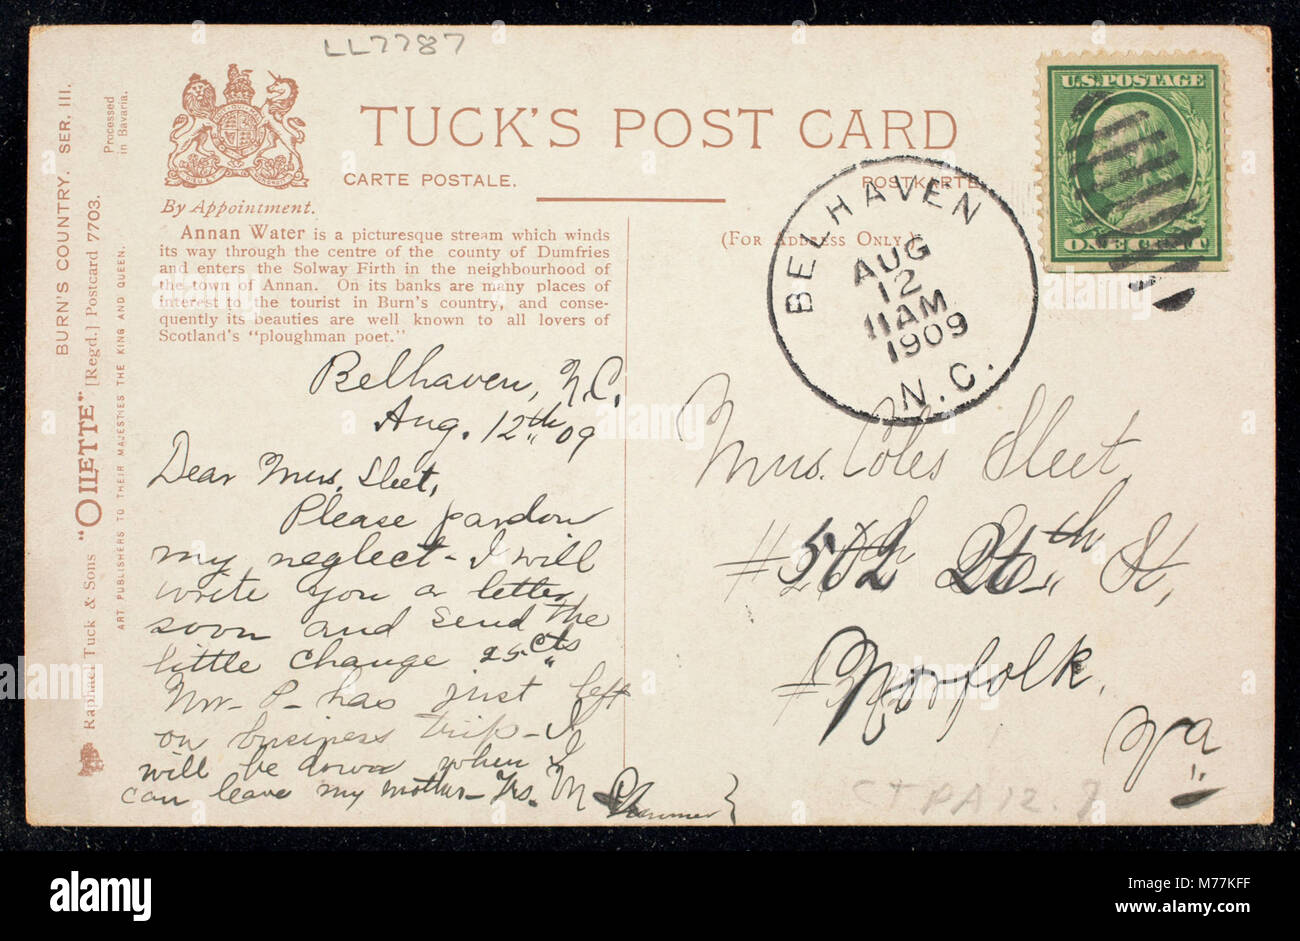 LL7787
TUCK'S POST CARD
CARTE POSTALE.
POSTKARTE
By Appointment.
(FOR ADDRESS ONLY.)
Annan Water is a picturesque stream which winds
its way through the centre of the county of Dumfries
and enters the Solway Firth in the neighbourhood of
the town of Annan. On its banks are many places of
interest to the tourist in Burn's country, and conse-
quently its beauties are well known to all lovers of
Scotland's "ploughman poet."
BURN'S COUNTRY. SER. III.
Processed
in Bavaria.
Raphael Tuck & Sons "OILETTE" [Regd.] Postcard 7703.
ART PUBLISHERS TO THEIR MAJESTIES THE KING AND QUEEN.
U.S. POSTAGE
ONE CENT
BELHAVEN
AUG
12
11 AM
1909
N.C.
Belhaven, N.C.
Aug. 12th 09
Dear Mrs. Sleet,
Please pardon
my neglect - I will
write you a letter
soon and send the
little change 25 cts
Mr. P- has just left
on business trip - I
will be down when I
can leave my mother - Yrs. M
Mrs. Coles Sleet,
# 502 26th St,
Norfolk,
Va
CTPA12.
alamy
Image ID: M77KFF
www.alamy.com